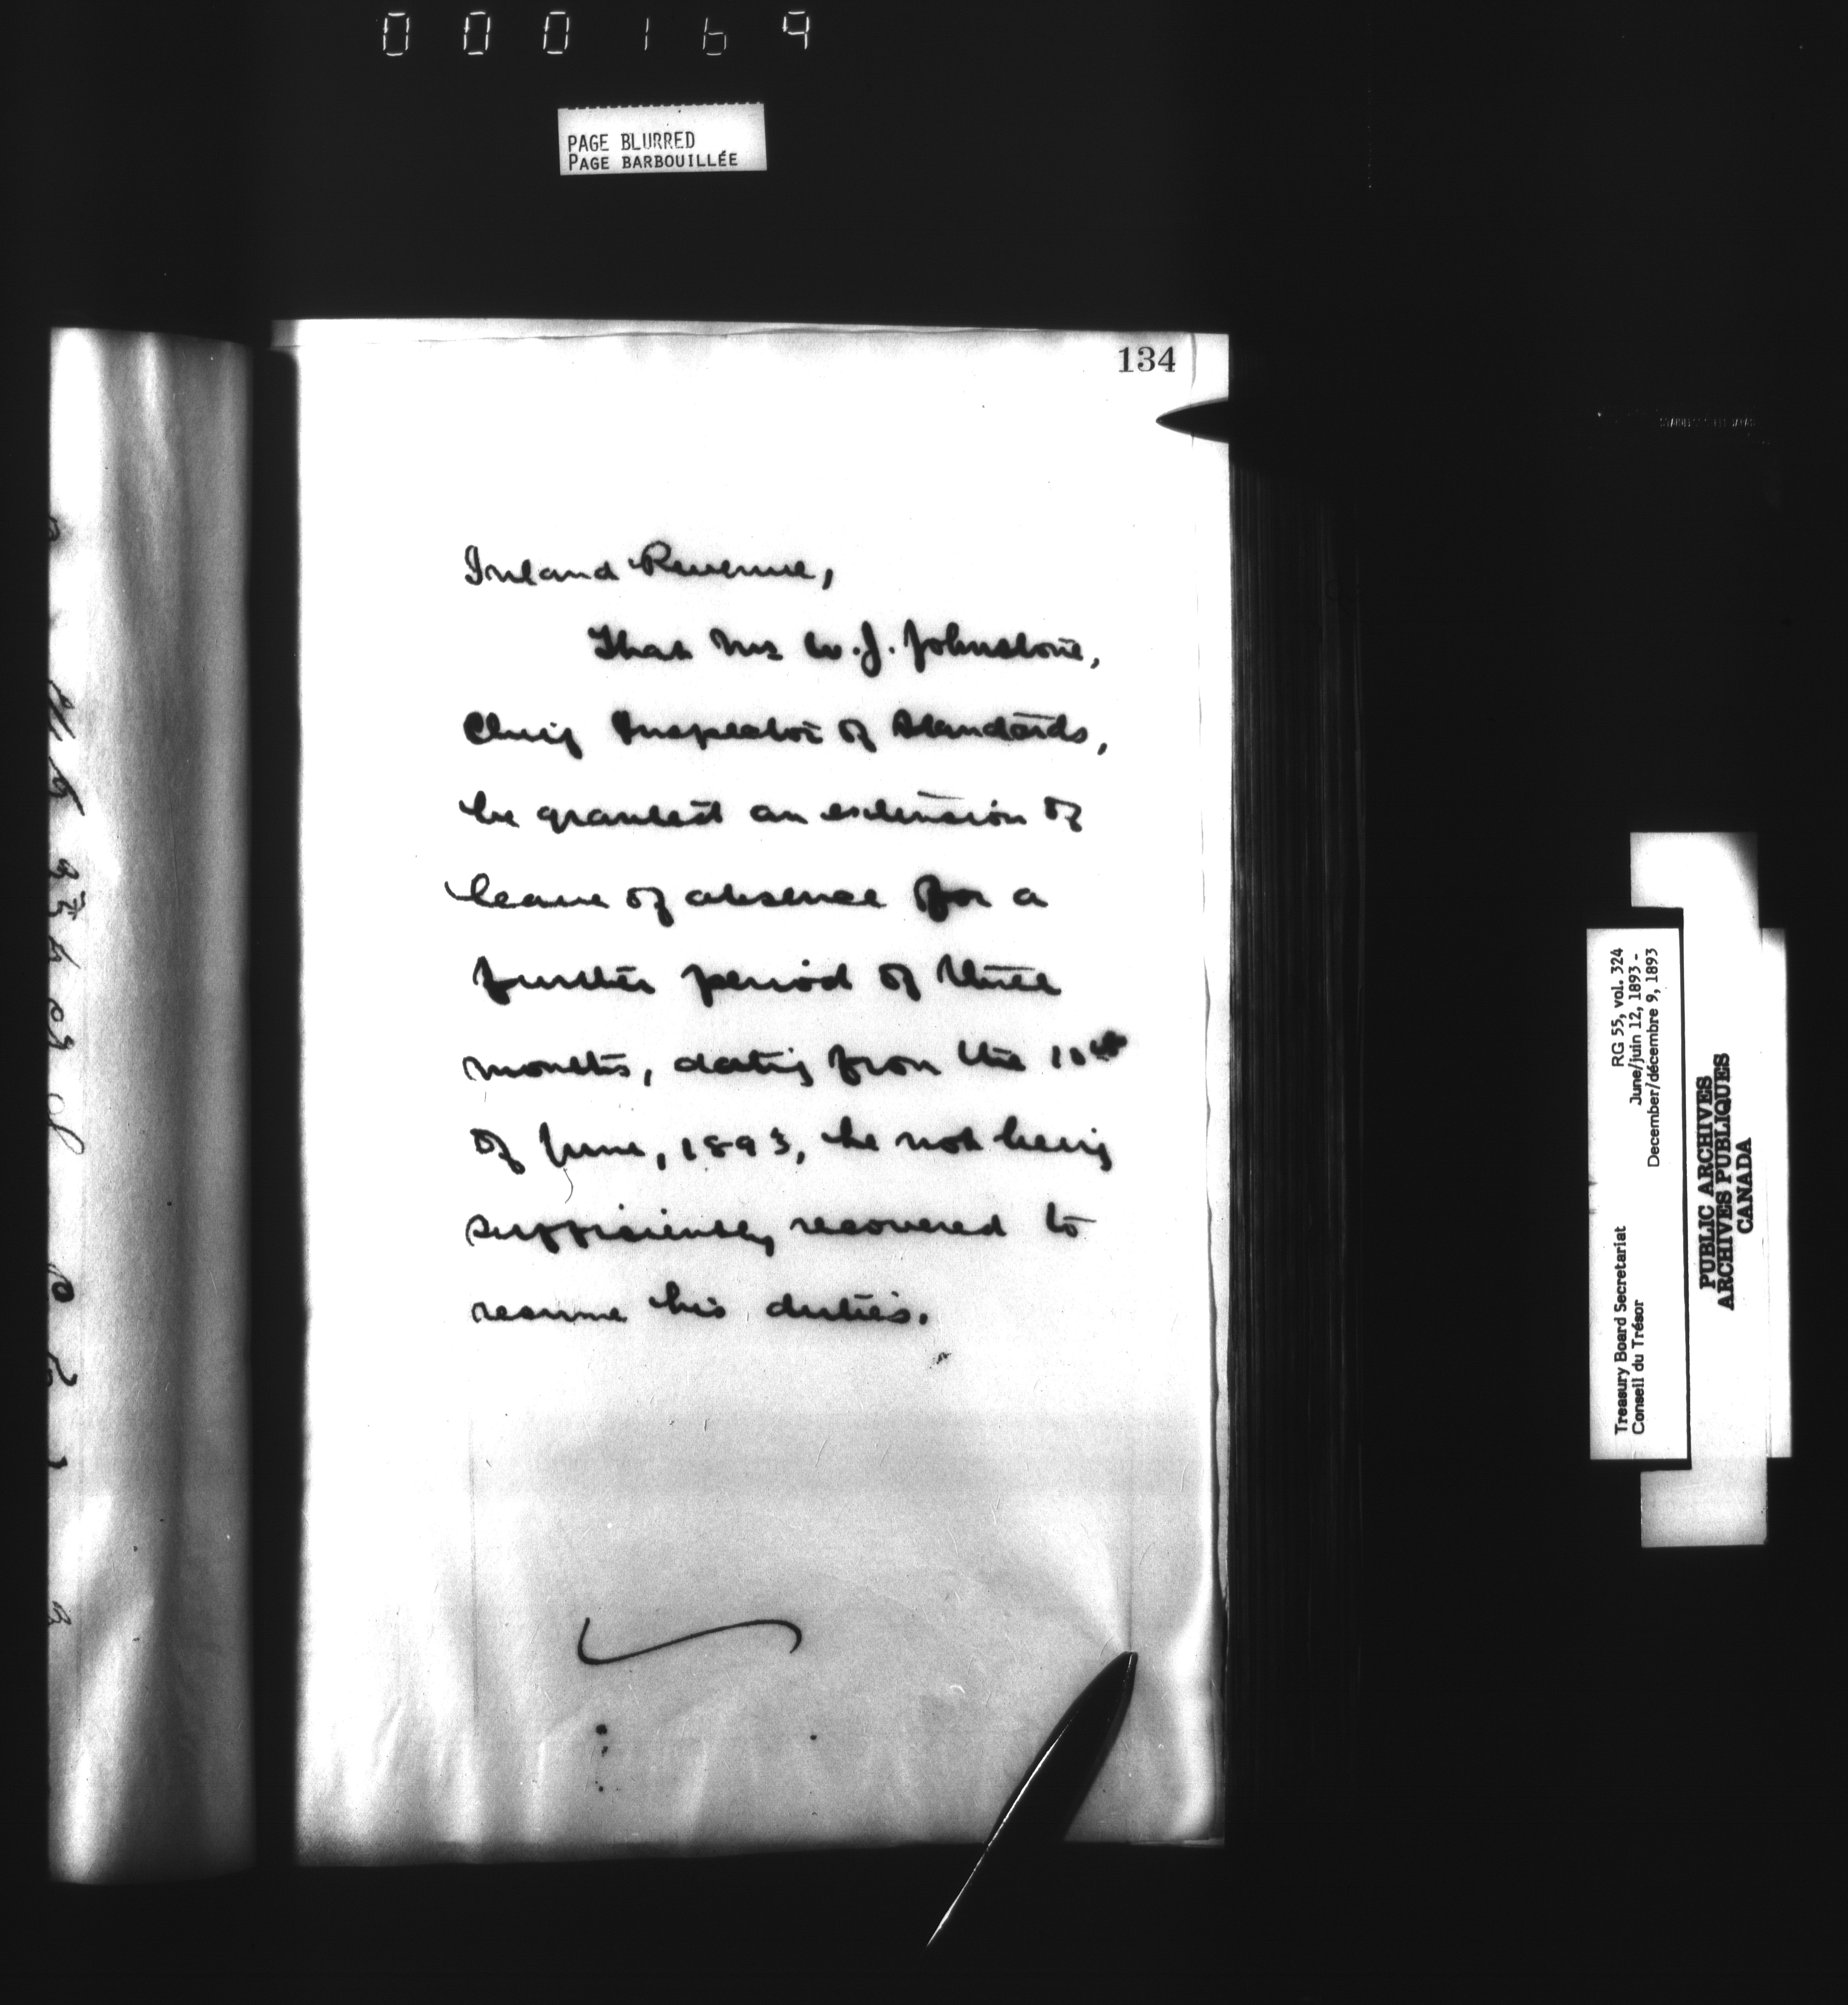 000169
PAGE BLURRED
PAGE BARBOUILLÉE
134
Inland Revenue,
That Mr W. J. Johnstone,
Chief Inspector of Standards,
be granted an extension of
leave of absence for a
further period of three
months, dating from the 10th
of June, 1893, he not being
sufficiently recovered to
resume his duties.
Treasury Board Secretariat
Conseil du Trésor
RG 55, vol. 324
June/juin 12, 1893 -
December/décembre 9, 1893
PUBLIC ARCHIVES
ARCHIVES PUBLIQUES
CANADA